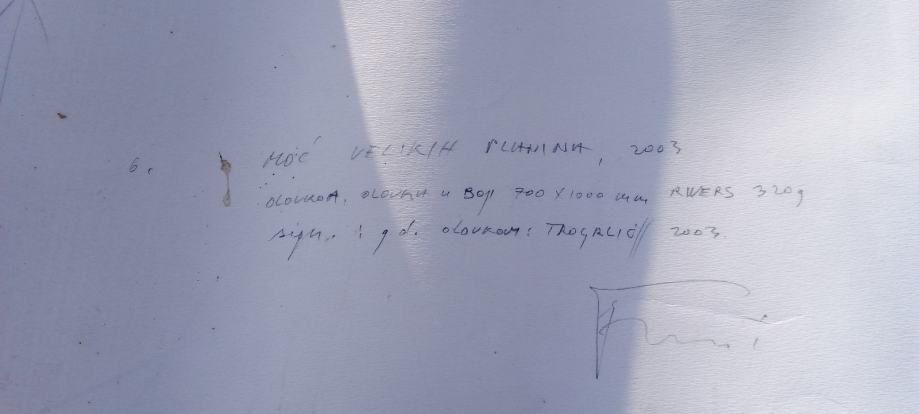 6. MOĆ VELIKIH PLANINA, 2003
OLOVKA, OLOVKA U BOJI 700 X 1000 mm RIVERS 320g
sign. i g d. OLOVKOM: 2003.